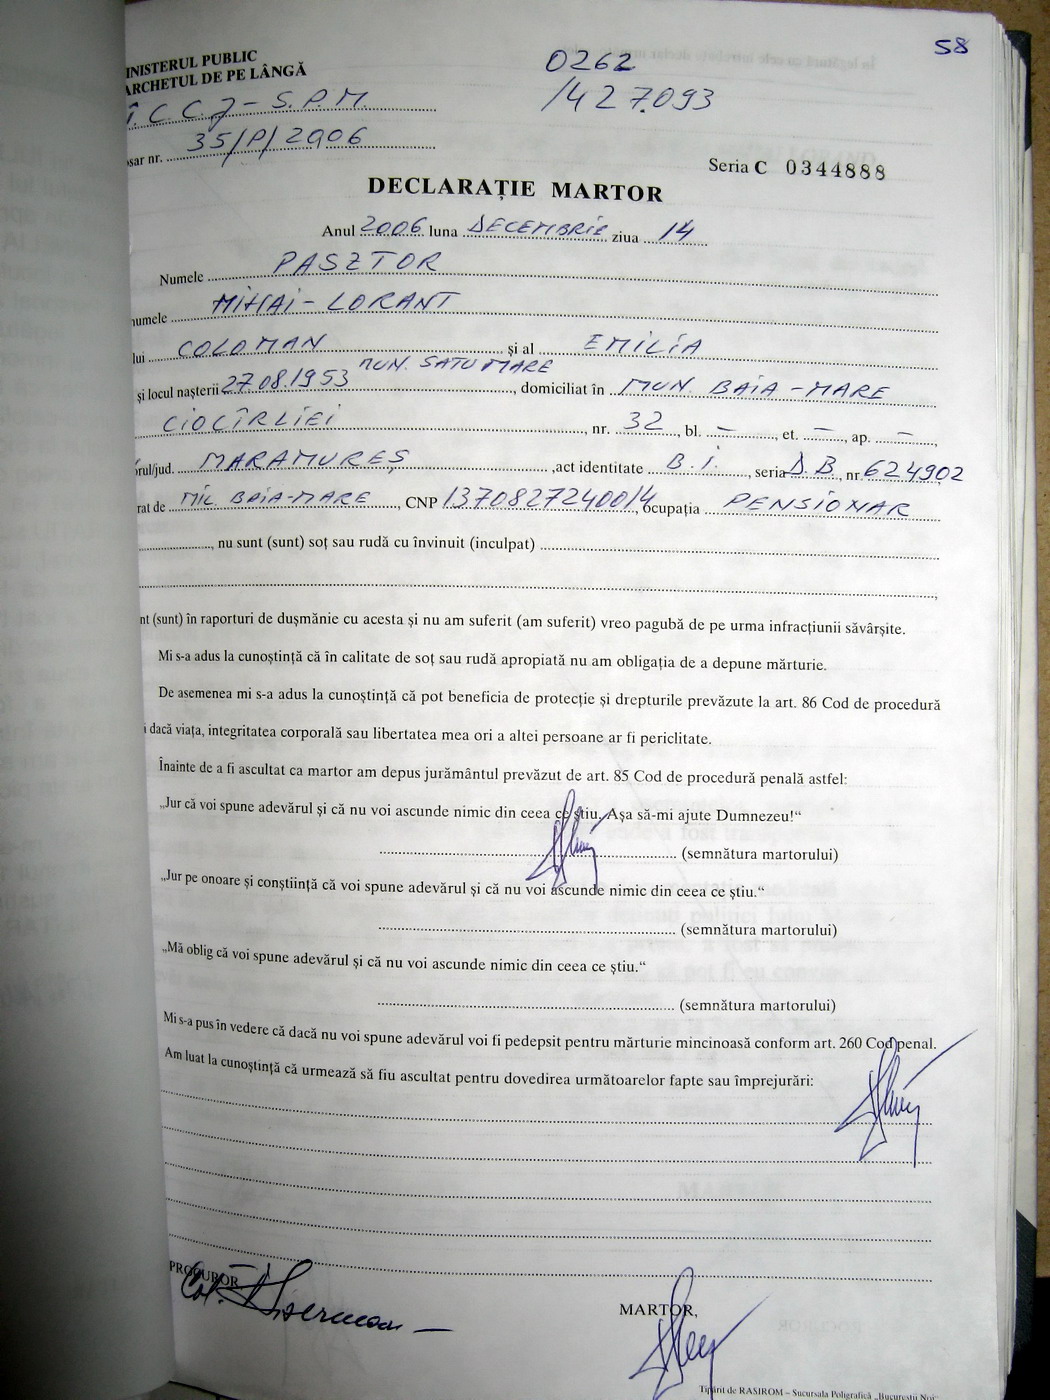 58
INISTERUL PUBLIC
ARCHETUL DE PE LÂNGĂ
0262
/427.093
Î.C.C.J – S.P.M.
osar nr. 35/P/2006
Seria C 0344888
DECLARAȚIE MARTOR
Anul 2006 luna DECEMBRIE ziua 14
Numele PASZTOR
numele MIHAI – LORANT
lui COLOMAN și al EMILIA
MUN. SATU MARE
și locul nașterii 27.08.1953, domiciliat în MUN. BAIA – MARE
CIOCÎRLIEI, nr. 32, bl. –, et. –, ap. –,
rul/jud. MARAMUREȘ, act identitate B.I., seria D.B., nr 624902
rat de MIL. BAIA-MARE, CNP 1370827240014, ocupația PENSIONAR
, nu sunt (sunt) soț sau rudă cu învinuit (inculpat)
nt (sunt) în raporturi de dușmănie cu acesta și nu am suferit (am suferit) vreo pagubă de pe urma infracțiunii săvârșite.
Mi s-a adus la cunoștință că în calitate de soț sau rudă apropiată nu am obligația de a depune mărturie.
De asemenea mi s-a adus la cunoștință că pot beneficia de protecție și drepturile prevăzute la art. 86 Cod de procedură
i dacă viața, integritatea corporală sau libertatea mea ori a altei persoane ar fi periclitate.
Înainte de a fi ascultat ca martor am depus jurământul prevăzut de art. 85 Cod de procedură penală astfel:
„Jur că voi spune adevărul și că nu voi ascunde nimic din ceea ce știu. Așa să-mi ajute Dumnezeu!“
(semnătura martorului)
„Jur pe onoare și conștiință că voi spune adevărul și că nu voi ascunde nimic din ceea ce știu.“
(semnătura martorului)
„Mă oblig că voi spune adevărul și că nu voi ascunde nimic din ceea ce știu.“
(semnătura martorului)
Mi s-a pus în vedere că dacă nu voi spune adevărul voi fi pedepsit pentru mărturie mincinoasă conform art. 260 Cod penal.
Am luat la cunoștință că urmează să fiu ascultat pentru dovedirea următoarelor fapte sau împrejurări:
PROCUROR
MARTOR,
Tipărit de RASIROM – Sucursala Poligrafică „Bucureștii Noi“